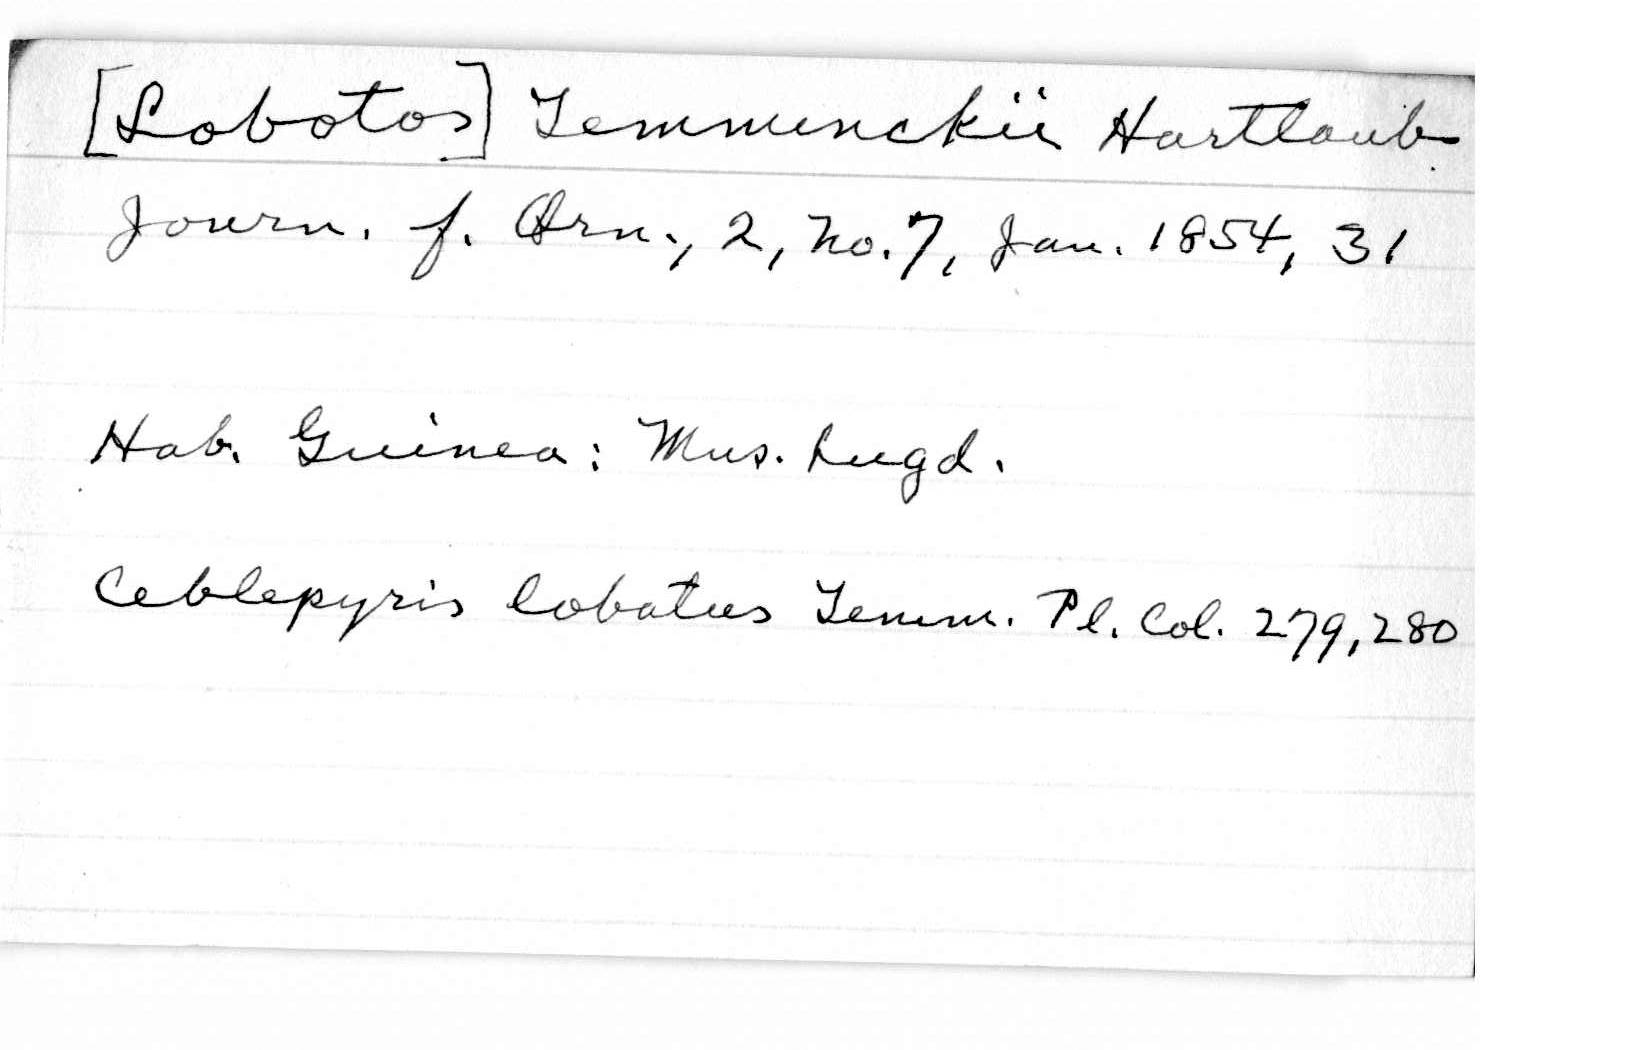 [Lobotos] Temminckii Hartlaub
Journ. f. Orn., 2, No. 7, Jan. 1854, 31
Hab. Guinea: Mus. Lugd.
Ceblepyris lobatus Temm. Pl. Col. 279, 280